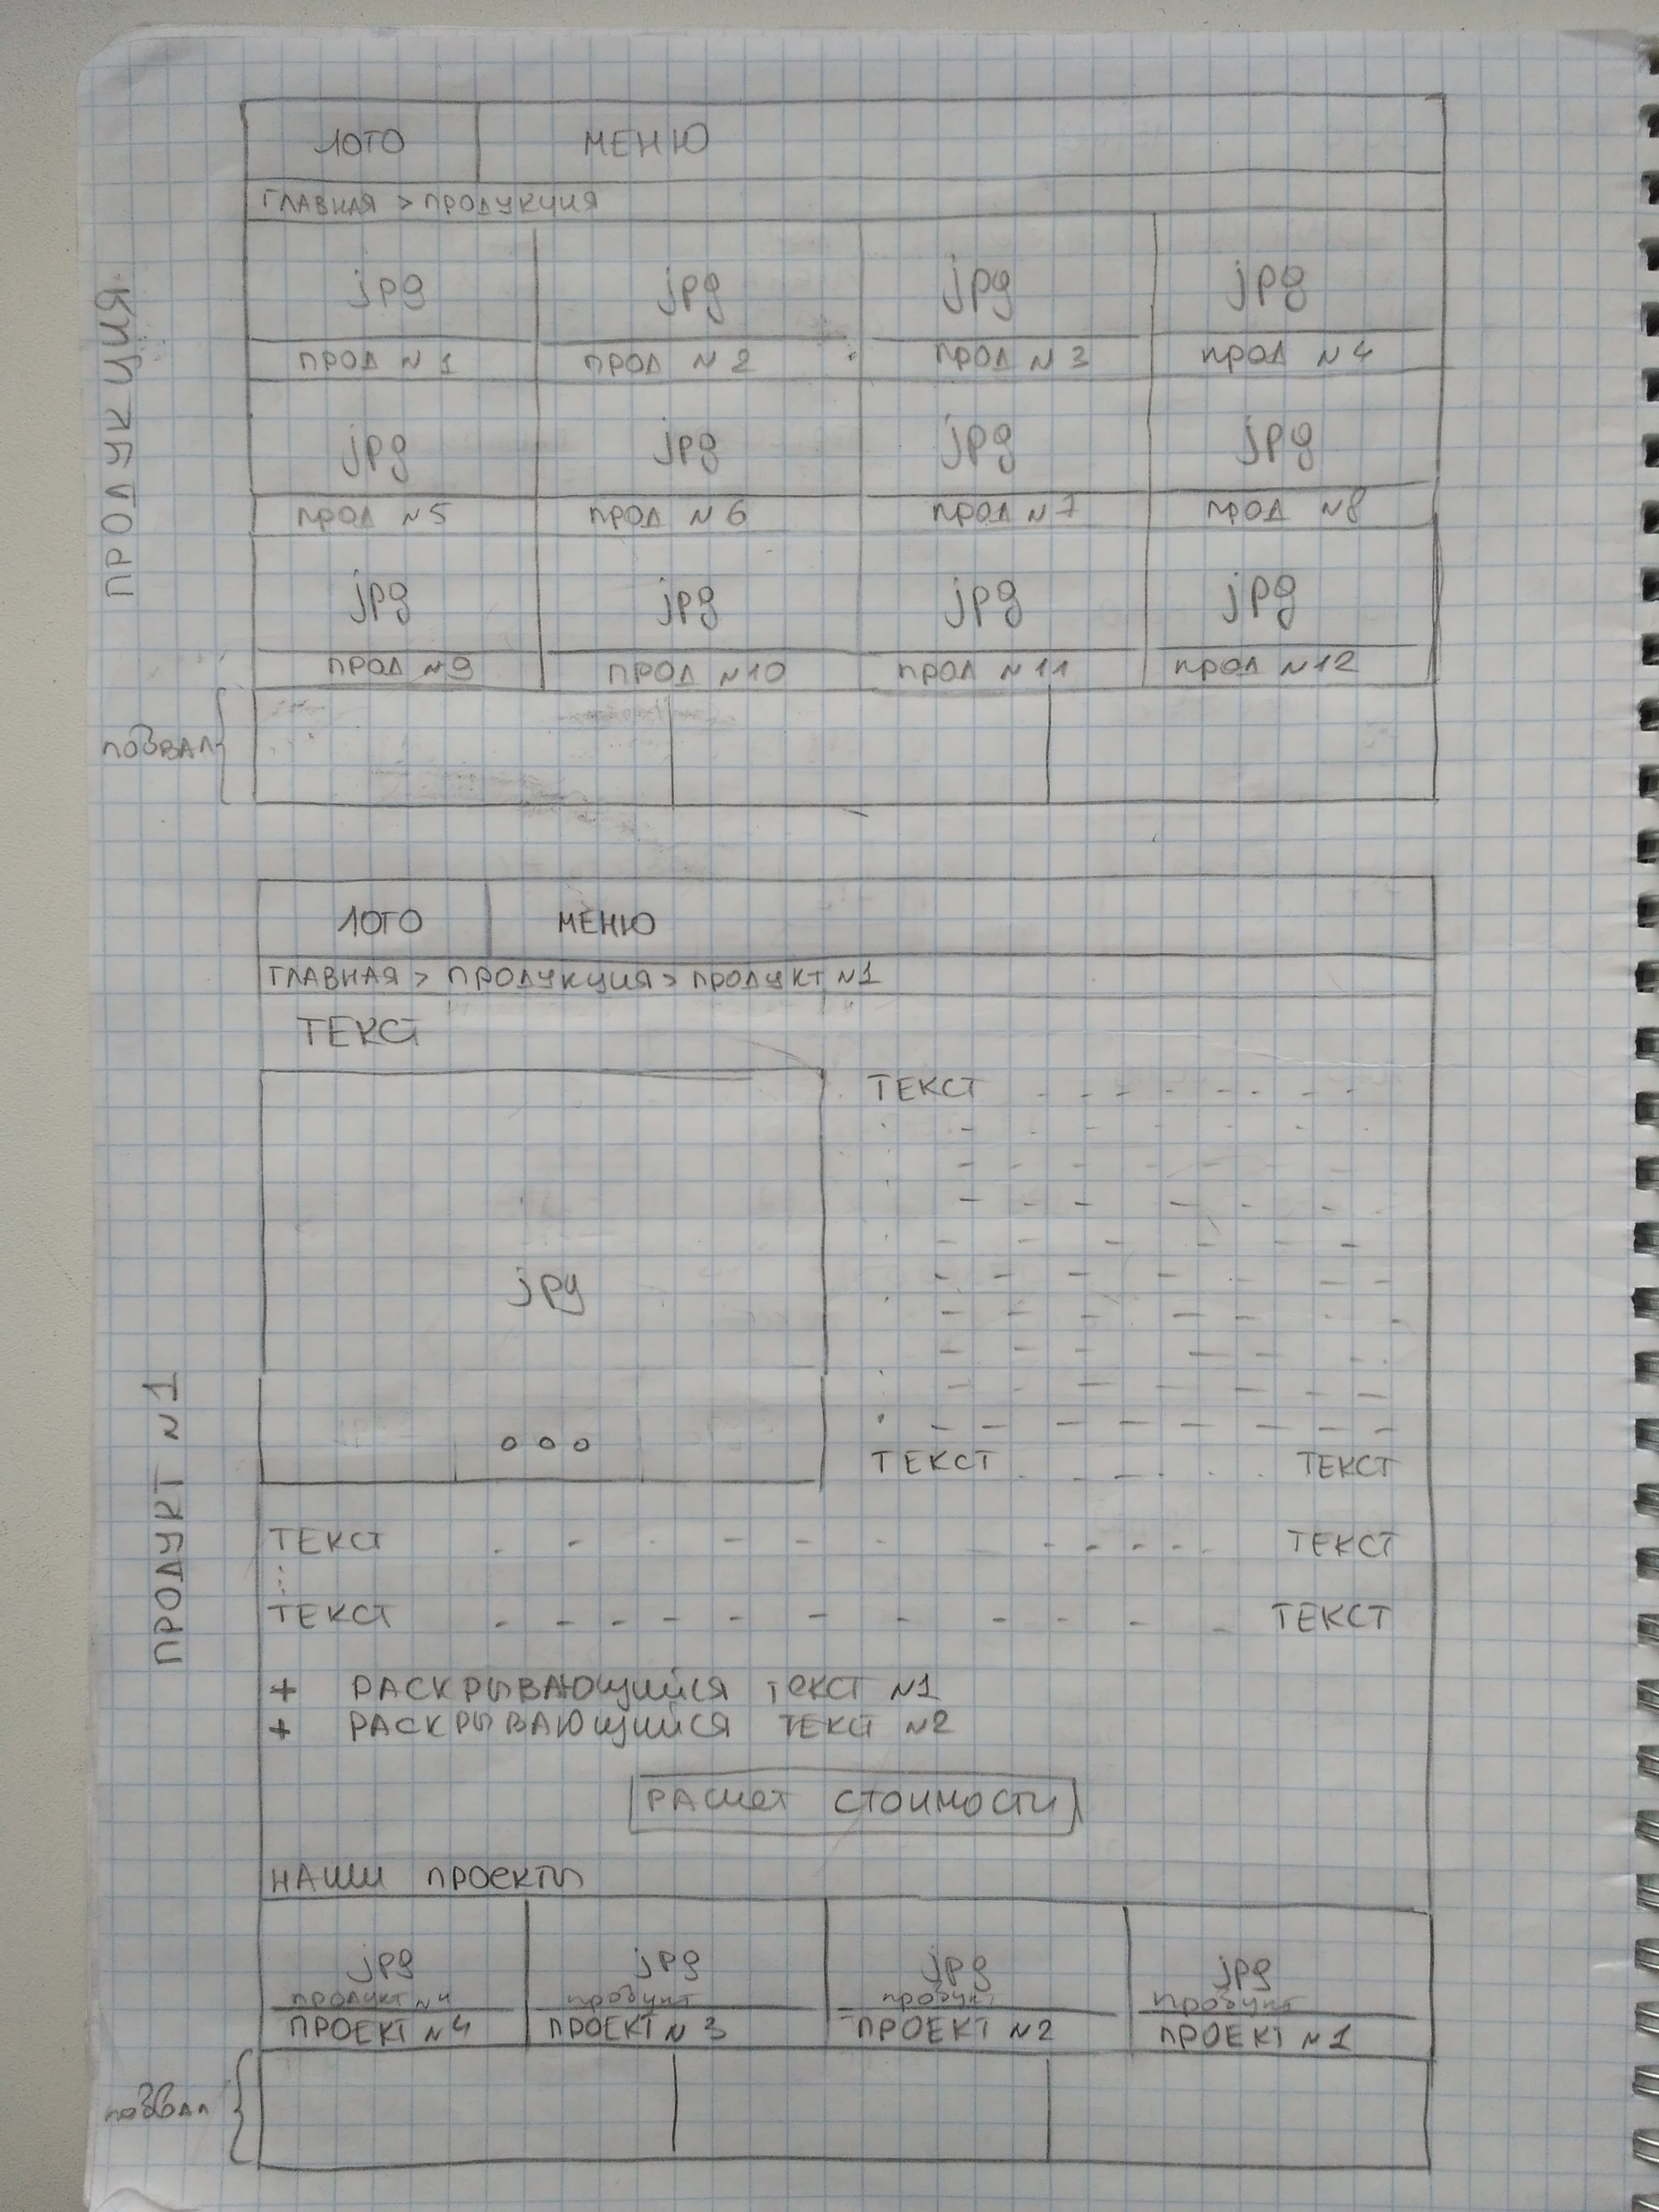 ПРОДУКЦИЯ
ЛОГО МЕНЮ
ГЛАВНАЯ > ПРОДУКЦИЯ
jpg jpg jpg jpg
ПРОД N1 ПРОД N2 ПРОД N3 ПРОД N4
jpg jpg jpg jpg
ПРОД N5 ПРОД N6 ПРОД N7 ПРОД N8
jpg jpg jpg jpg
ПРОД N9 ПРОД N10 ПРОД N11 ПРОД N12
подвал
ПРОДУКТ N1
ЛОГО МЕНЮ
ГЛАВНАЯ > ПРОДУКЦИЯ > ПРОДУКТ N1
ТЕКСТ
ТЕКСТ
jpg
ТЕКСТ ТЕКСТ
ТЕКСТ ТЕКСТ
ТЕКСТ ТЕКСТ
+ РАСКРЫВАЮЩИЙСЯ ТЕКСТ N1
+ РАСКРЫВАЮЩИЙСЯ ТЕКСТ N2
РАСЧЕТ СТОИМОСТИ
НАШИ ПРОЕКТЫ
jpg jpg jpg jpg
продукт N4 продукт продукт продукт
ПРОЕКТ N4 ПРОЕКТ N3 ПРОЕКТ N2 ПРОЕКТ N1
подвал